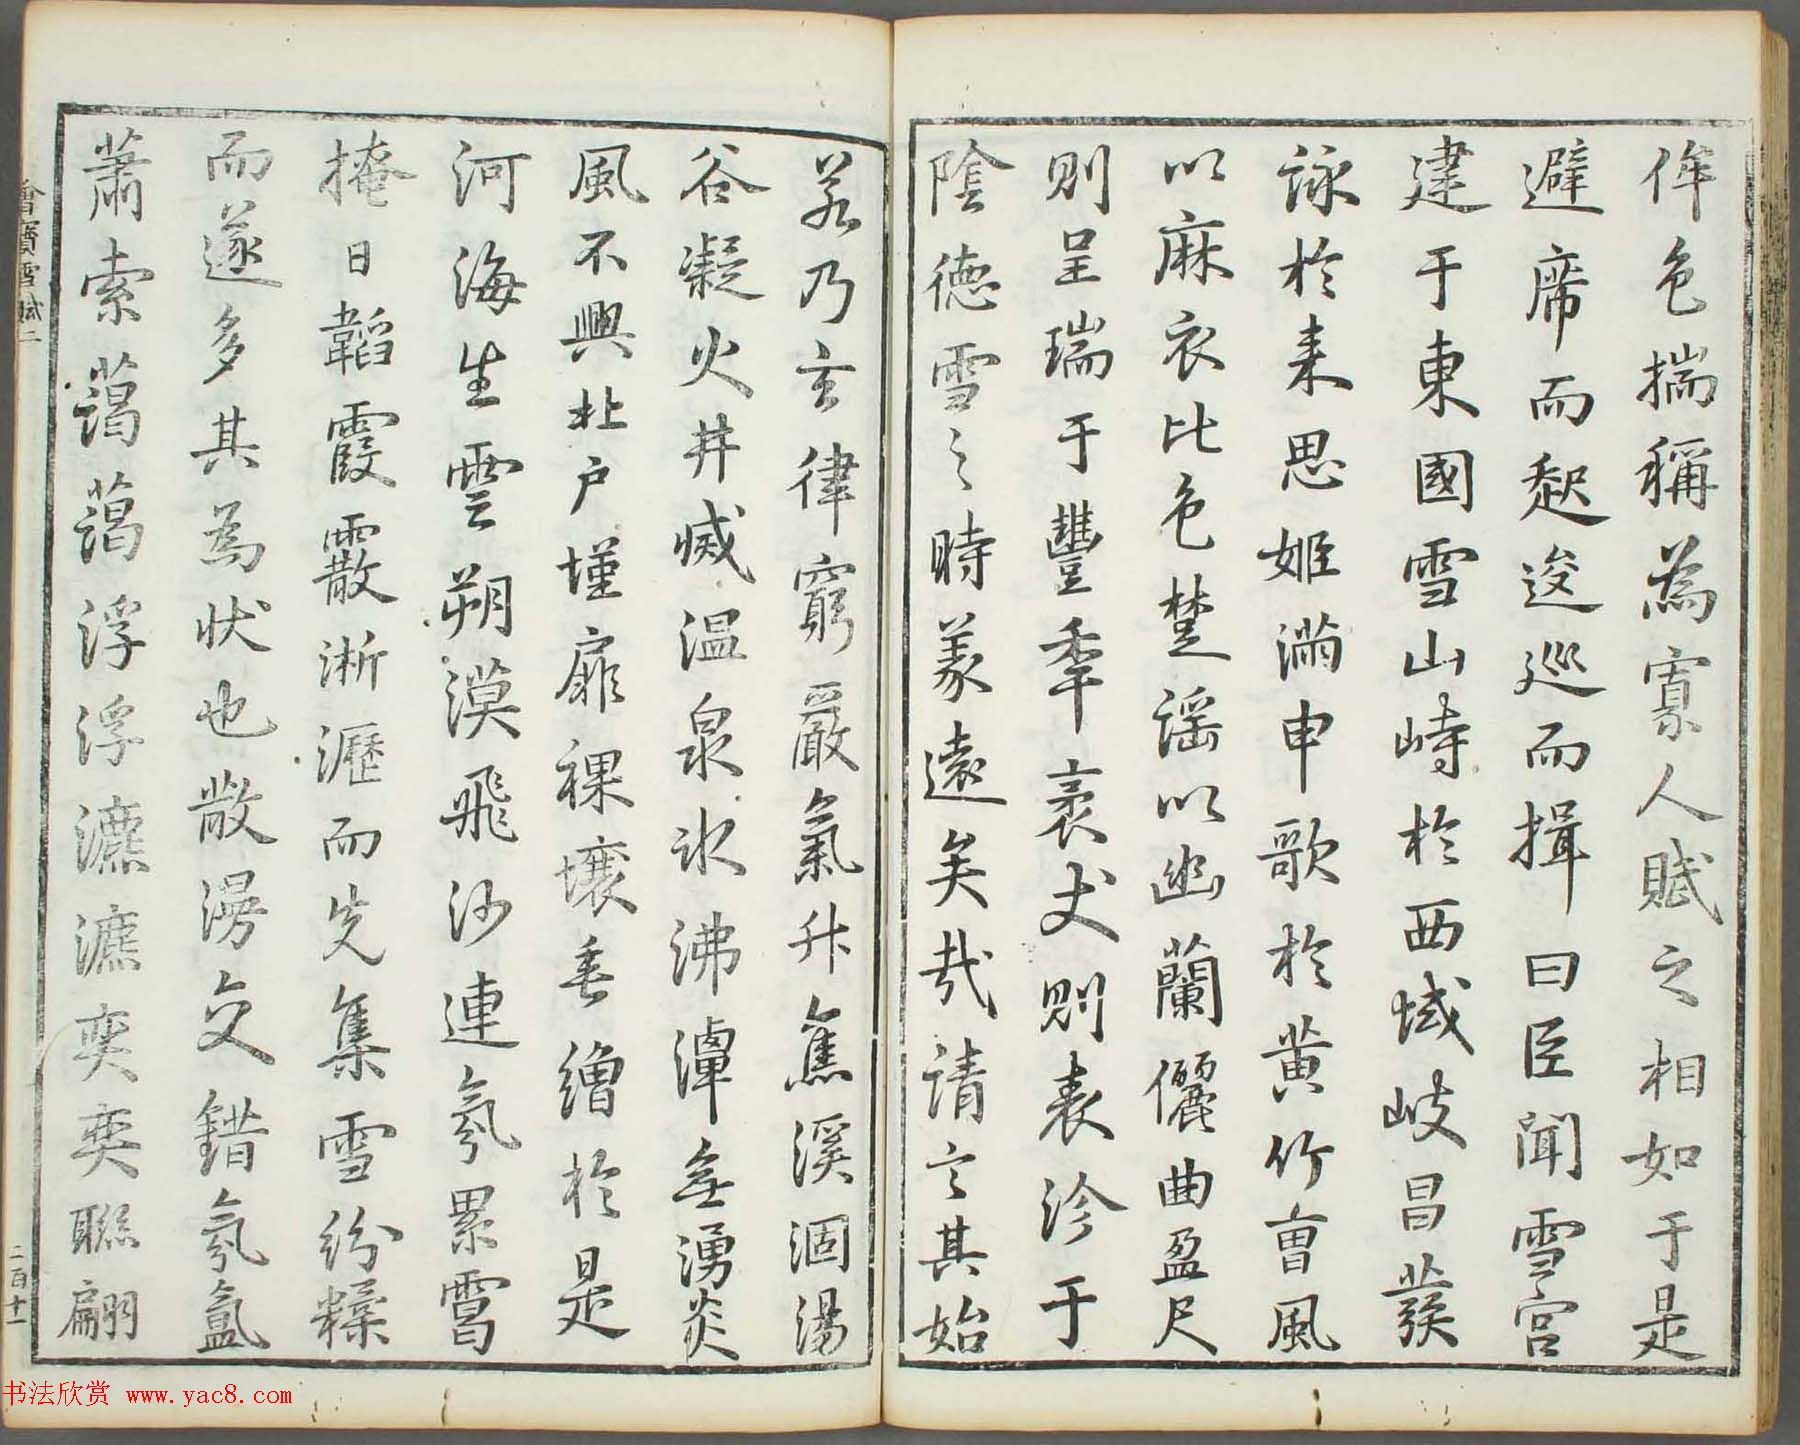 侔色揣稱為寡人賦之相如于是
避席而起逡巡而揖曰臣聞雪宮
建于東國雪山峙於西域岐昌發
詠於来思姬滿申歌於黄竹曹風
以麻衣比色楚謡以幽蘭儷曲盈尺
則呈瑞于豐秊袤丈則表沴于
陰德雪之時義遠矣哉請言其始
若乃玄律窮嚴氣升焦溪涸湯
谷凝火井烕温泉冰沸潭無湧炎
風不興北户墐扉裸壤垂繒於是
河海生雲朔漠飛沙連氛累靄
掩日韜霞霰淅瀝而先集雪紛糅
而遂多其為狀也散漫交錯氛氲
蕭索藹藹浮浮瀌瀌奕奕聯翩
雪賦二
二百十一
书法欣赏 www.yac8.com